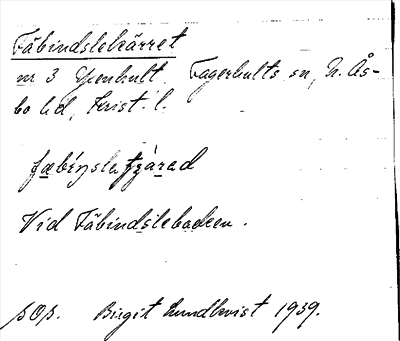 Fäbindslekärret
nr 3 Ysenhult. Fagerhults sn, N. Ås-
bo hd, Krist. l.
Vid Fäbindslebacken.
sOs. Birgit Lundkvist 1939.